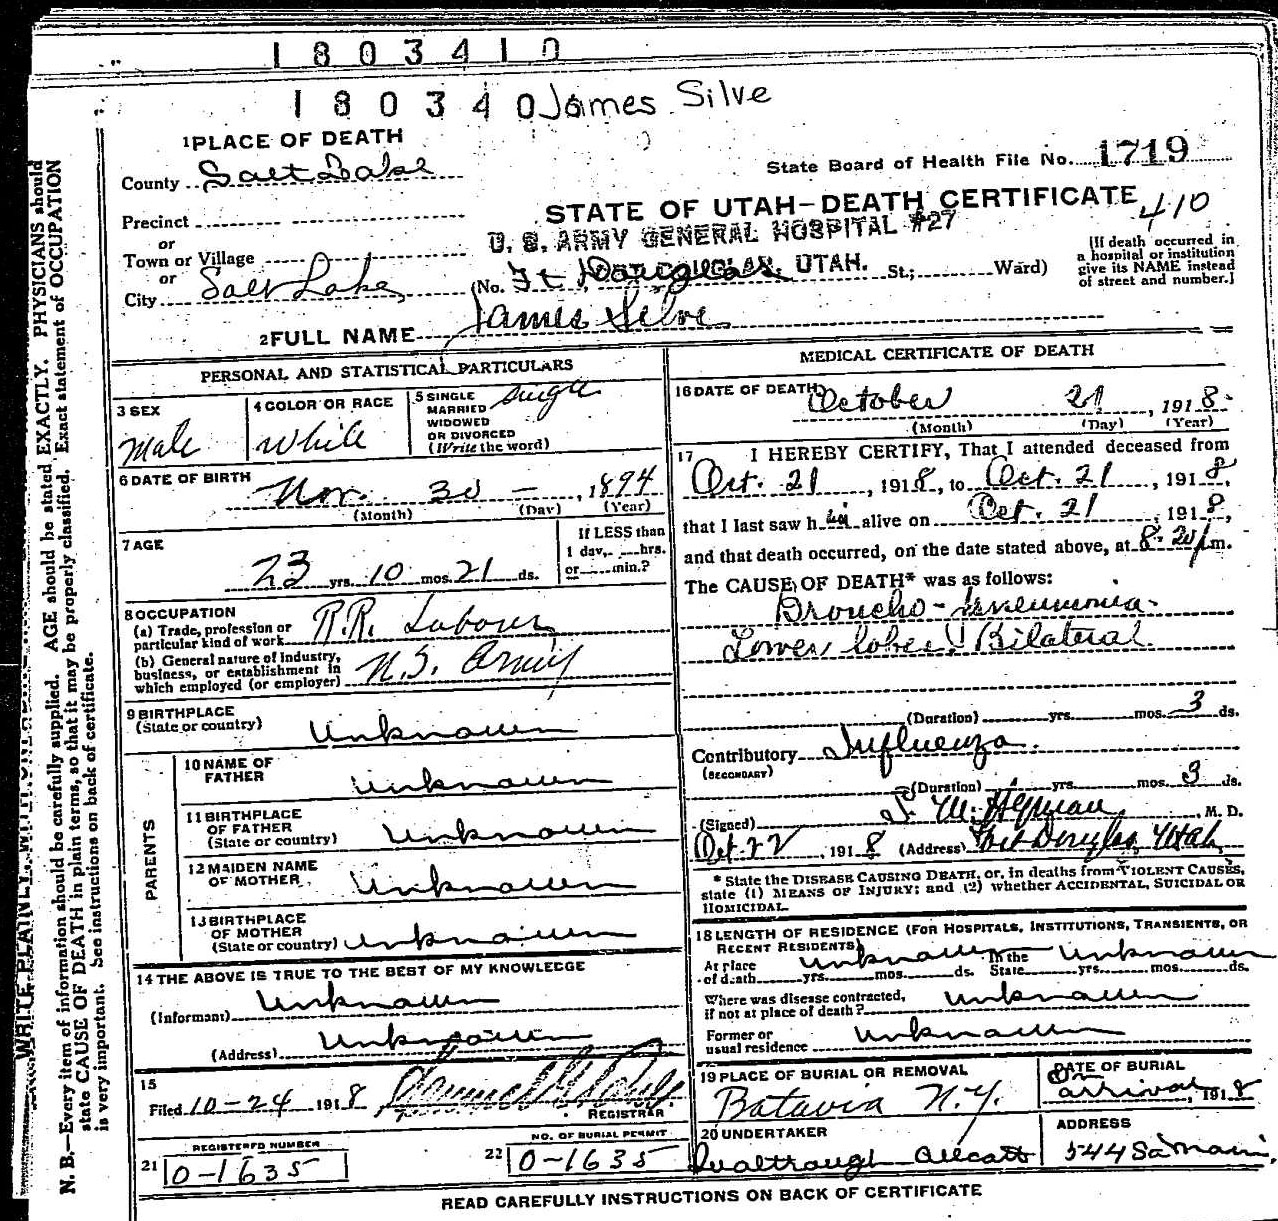 1803410
180340 James Silve
1 PLACE OF DEATH
State Board of Health File No. 1719
County Salt Lake
STATE OF UTAH—DEATH CERTIFICATE
410
Precinct
U. S. ARMY GENERAL HOSPITAL #27
or
Town or Village
or
City Salt Lake
(No. Ft Douglas, UTAH. St.; Ward)
(If death occurred in a hospital or institution give its NAME instead of street and number.)
2 FULL NAME James Silve
PERSONAL AND STATISTICAL PARTICULARS
3 SEX
Male
4 COLOR OR RACE
White
5 SINGLE
MARRIED
WIDOWED
OR DIVORCED
(Write the word)
Single
6 DATE OF BIRTH
Nov. 30 — , 1894
(Month) (Day) (Year)
7 AGE
23 yrs. 10 mos. 21 ds.
If LESS than
1 day, hrs.
or min.?
8 OCCUPATION
(a) Trade, profession or
particular kind of work R.R. Laborer
(b) General nature of industry,
business, or establishment in
which employed (or employer) U.S. Army
9 BIRTHPLACE
(State or country) Unknown
PARENTS
10 NAME OF
FATHER Unknown
11 BIRTHPLACE
OF FATHER
(State or country) Unknown
12 MAIDEN NAME
OF MOTHER Unknown
13 BIRTHPLACE
OF MOTHER
(State or country) Unknown
14 THE ABOVE IS TRUE TO THE BEST OF MY KNOWLEDGE
(Informant) Unknown
(Address) Unknown
15
Filed 10-24 1918
REGISTRAR
REGISTERED NUMBER
21 0-1635
NO. OF BURIAL PERMIT
22 0-1635
MEDICAL CERTIFICATE OF DEATH
16 DATE OF DEATH
October 21, 1918
(Month) (Day) (Year)
17 I HEREBY CERTIFY, That I attended deceased from
Oct. 21, 1918, to Oct. 21, 1918,
that I last saw him alive on Oct. 21, 1918,
and that death occurred, on the date stated above, at 8.20 p.m.
The CAUSE OF DEATH* was as follows:
Broncho-pneumonia
Lower lobes. Bilateral.
(Duration) yrs. mos. 3 ds.
Contributory Influenza.
(SECONDARY)
(Duration) yrs. mos. 3 ds.
(Signed) S. M. Hyman, M. D.
Oct. 22, 1918 (Address) Fort Douglas, Utah
* State the DISEASE CAUSING DEATH, or, in deaths from VIOLENT CAUSES,
state (1) MEANS OF INJURY; and (2) whether ACCIDENTAL, SUICIDAL OR
HOMICIDAL.
18 LENGTH OF RESIDENCE (FOR HOSPITALS, INSTITUTIONS, TRANSIENTS, OR
RECENT RESIDENTS)
At place
of death Unknown yrs. mos. ds. In the State Unknown yrs. mos. ds.
Where was disease contracted,
if not at place of death? Unknown
Former or
usual residence Unknown
19 PLACE OF BURIAL OR REMOVAL
Batavia N.Y.
DATE OF BURIAL
On arrival, 1918
20 UNDERTAKER
ADDRESS
544 So Main.
READ CAREFULLY INSTRUCTIONS ON BACK OF CERTIFICATE
N. B.—Every item of information should be carefully supplied. AGE should be stated EXACTLY. PHYSICIANS should
state CAUSE OF DEATH in plain terms, so that it may be properly classified. Exact statement of OCCUPATION
is very important. See instructions on back of certificate.